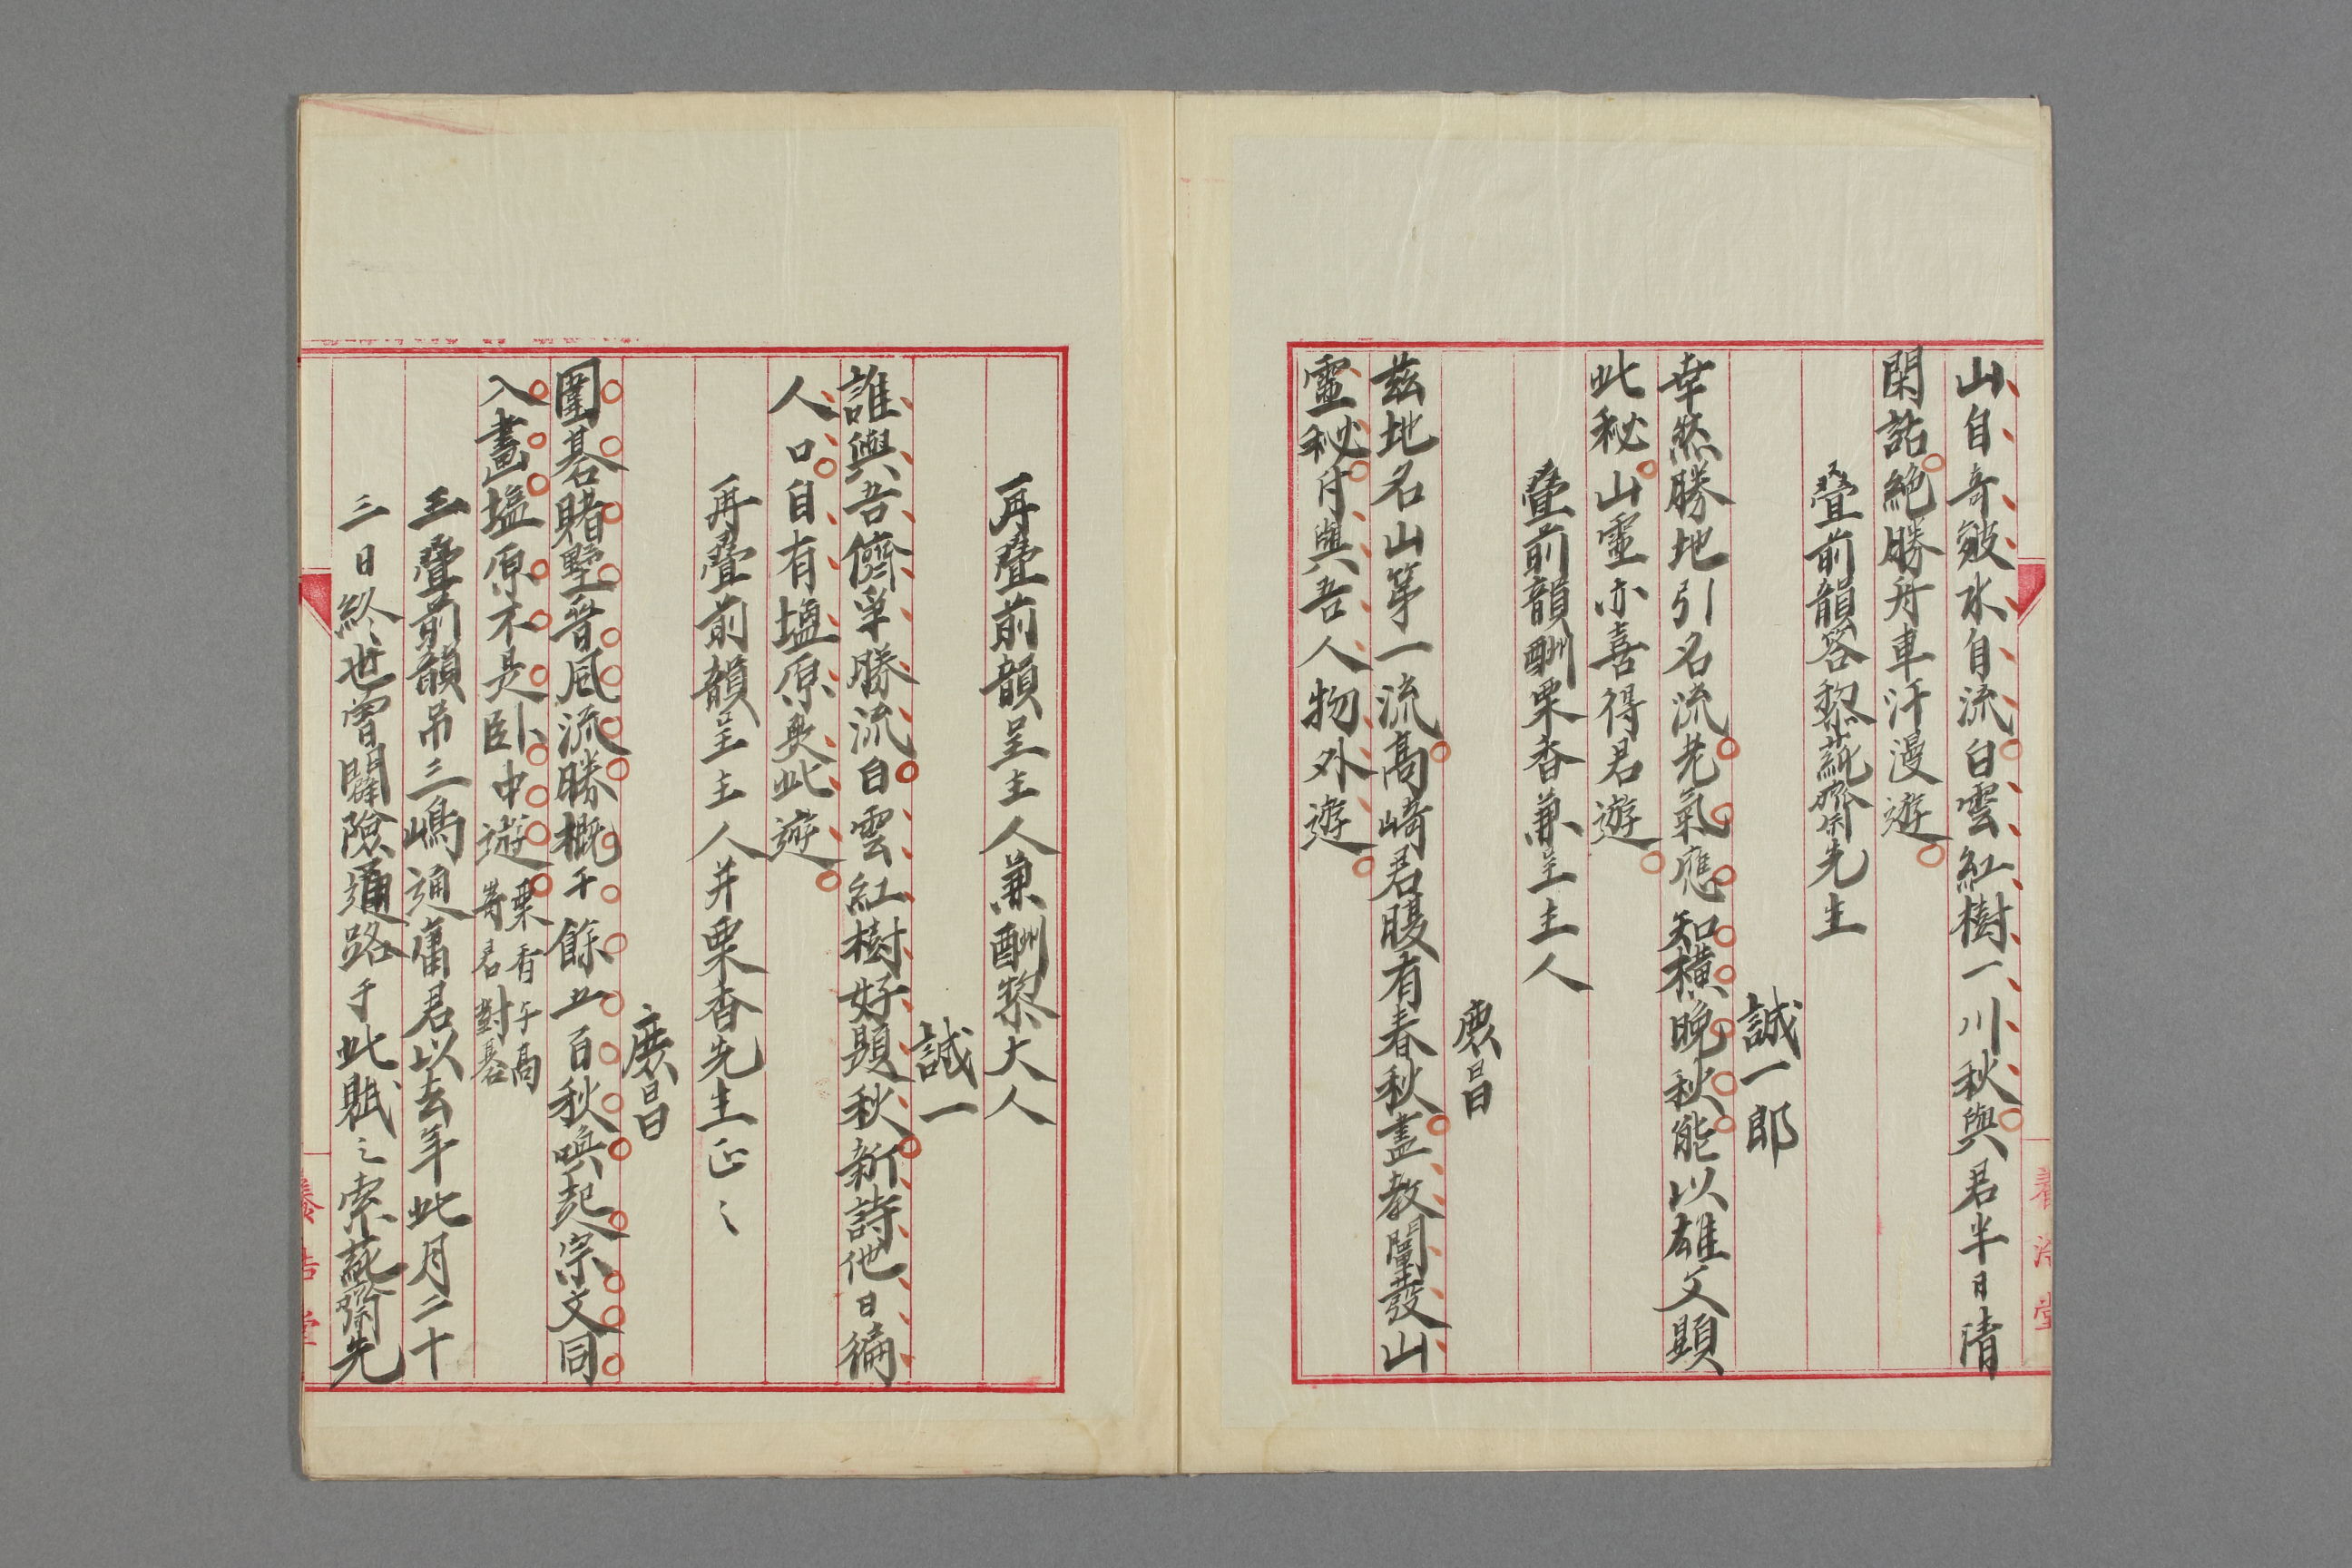 山自奇皴水自流白雲紅樹一川秋與君半日清
閑話絶勝舟車汗漫遊
疊前韻答黎蒓齋先生
誠一郎
幸然勝地引名流老氣應知橫晩秋能以雄文顕
此秘山靈亦喜得君遊
疊前韻酬栗香兼呈主人
庶昌
茲地名山等一流高崎君腹有春秋盡教闡發山
靈秘付與吾人物外遊
養浩堂
再疊前韻呈主人兼酬黎大人
誠一
誰與吾儕爭勝流白雲紅樹好題秋新詩他日徧
人口自有塩原無此遊
再疊前韻呈主人并栗香先生正之
庶昌
圍碁賭墅晉風流勝概千餘五百秋喚起宗文同
入畫塩原不是臥中遊
栗香与高
嵜君對碁
三疊前韻吊三嶋通庸君以去年此月二十
三日終世曽開險通路于此賦之索蒓齋先
養浩堂